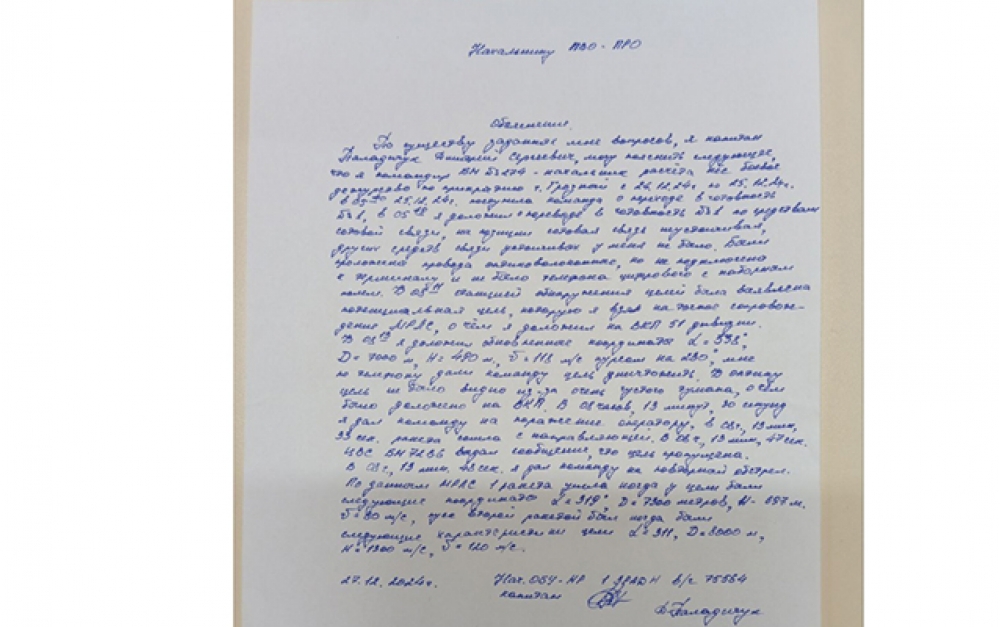 Начальнику ПВО-ПРО
Объяснение.
По существу заданных мне вопросов, я капитан
Паладичук Дмитрий Сергеевич, могу пояснить следующее,
что я командир БМ №274 - начальник расчёта нёс боевое
дежурство по прикрытию г. Грозный с 24 по 25.12.24г.
25.12.24г. поступила команда о переходе в готовность
№1, в 05 я доложил о переводе в готовность №1 по средствам
сотовой связи, на позиции сотовая связь неустойчивая,
других средств связи устойчивых у меня не было. Были
проложена провода оптиковолоконные, но не подключена
к терминалу и не было телефона цифрового с наборным
полем. В 08¹¹ станцией обнаружения целей была выявлена
потенциальная цель, которую я взял на точное сопровож-
дение МРЛС, о чём я доложил на ВКП 51 дивизии.
В 08¹³ я доложил обновленные координаты L = 338°,
D = 7000 м, H = 480 м, V = 118 м/с курсом на 230°, мне
по телефону дали команду цель уничтожить. В оптику
цель не было видно из-за очень густого тумана, о чём
было доложено на ВКП. В 08 часов, 13 минут, 30 секунд
я дал команду на поражение оператору, в 08ч, 13 мин,
33 сек. ракета сошла с направляющей. В 08ч, 13 мин, 47 сек.
ЦВС БМ 72В6 выдал сообщение, что цель пропущена.
В 08ч, 13 мин. 48 сек. я дал команду на повторный обстрел.
По данным МРЛС 1 ракета ушла когда у цели были
следующие координаты L = 319°, D = 7300 метров, H - 857 м.
V = 80 м/с, пуск второй ракетой был когда были
следующие характеристики цели L = 311, D = 8000 м,
H = 1300 м/с, V = 120 м/с.
27.12.2024г. Нач. ОБУ-НР 1 ЗРАДН в/с 75584
капитан
Д. Паладичук